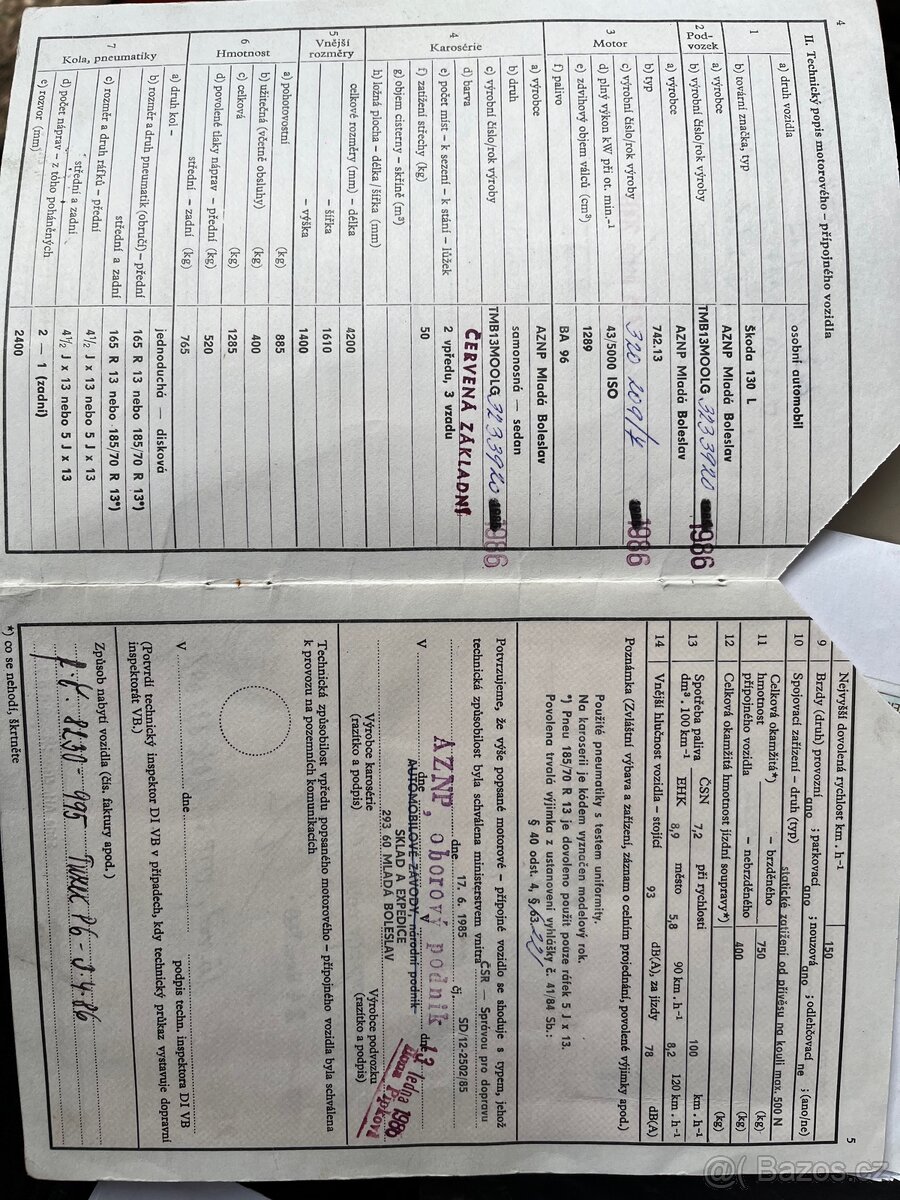 4
II. Technický popis motorového – přípojného vozidla
1
a) druh vozidla osobní automobil
b) tovární značka, typ Škoda 130 L
2 Pod-vozek
a) výrobce AZNP Mladá Boleslav
b) výrobní číslo/rok výroby TMB13MOOLG 3233920 1986
3 Motor
a) výrobce AZNP Mladá Boleslav
b) typ 742.13
c) výrobní číslo/rok výroby 320 209/4 1986
d) plný výkon kW při ot. min.-1 43/5000 ISO
e) zdvihový objem válců (cm³) 1289
f) palivo BA 96
4 Karosérie
a) výrobce AZNP Mladá Boleslav
b) druh samonosná — sedan
c) výrobní číslo/rok výroby TMB13MOOLG 3233920 1986
d) barva ČERVENÁ ZÁKLADNÍ
e) počet míst – k sezení – k stání – lůžek 2 vpředu, 3 vzadu
f) zatížení střechy (kg) 50
g) objem cisterny – skříně (m³)
h) ložná plocha – délka/šířka (mm)
5 Vnější rozměry
celkové rozměry (mm) – délka 4200
– šířka 1610
– výška 1400
6 Hmotnost
a) pohotovostní (kg) 885
b) užitečná (včetně obsluhy) (kg) 400
c) celková (kg) 1285
d) povolené tlaky náprav – přední (kg) 520
střední – zadní (kg) 765
7 Kola, pneumatiky
a) druh kol – jednoduchá — disková
b) rozměr a druh pneumatik (obručí) – přední 165 R 13 nebo 185/70 R 13*)
střední a zadní 165 R 13 nebo 185/70 R 13*)
c) rozměr a druh ráfků – přední 4½ J x 13 nebo 5 J x 13
střední a zadní 4½ J x 13 nebo 5 J x 13
d) počet náprav – z toho poháněných 2 — 1 (zadní)
e) rozvor (mm) 2400
5
Nejvyšší dovolená rychlost km . h-1 150
9 Brzdy (druh) provozní ano ; parkovací ano ; nouzová ano ; odlehčovací ne ; (ano/ne)
10 Spojovací zařízení – druh (typ) statické zatížení od přívěsu na kouli max. 500 N
11 Celková okamžitá*) hmotnost přípojného vozidla – brzděného 750 (kg)
– nebrzděného 400 (kg)
12 Celková okamžitá hmotnost jízdní soupravy*) (kg)
13 Spotřeba paliva dm³ . 100 km-1 ČSN 7,2 při rychlosti 100 km . h-1
EHK 8,9 město 5,8 90 km . h-1 8,2 120 km . h-1
14 Vnější hlučnost vozidla – stojící 93 dB(A), za jízdy 78 dB(A)
Poznámka (Zvláštní výbava a zařízení, záznam o celním projednání, povolené výjimky apod.)
Použité pneumatiky s testem uniformity.
Na karoserii je kodem vyznačen modelový rok.
*) Pneu 185/70 R 13 je dovoleno použít pouze ráfek 5 J x 13.
Povolena trvalá výjimka z ustanovení vyhlášky č. 41/84 Sb.:
§ 40 odst. 4, §
Potvrzujeme, že výše popsané motorové – přípojné vozidlo se shoduje s typem, jehož
technická způsobilost byla schválena ministerstvem vnitra ČSR — Správou pro dopravu
dne 17. 6. 1985 čj. SD/12-2502/85
V dne dne
AZNP, oborový podnik
AUTOMOBILOVÉ ZÁVODY, národní podnik
SKLAD A EXPEDICE
293 60 MLADÁ BOLESLAV
ledna 1986
Výrobce karosérie (razítko a podpis)
Výrobce podvozku (razítko a podpis)
Technická způsobilost vpředu popsaného motorového – přípojného vozidla byla schválena
k provozu na pozemních komunikacích
V dne
podpis techn. inspektora DI VB
(Potvrdí technický inspektor DI VB v případech, kdy technický průkaz vystavuje dopravní
inspektorát VB.)
Způsob nabytí vozidla (čís. faktury apod.)
8230-995 Tuzex
*) co se nehodí, škrtněte
@( Bazos.cz